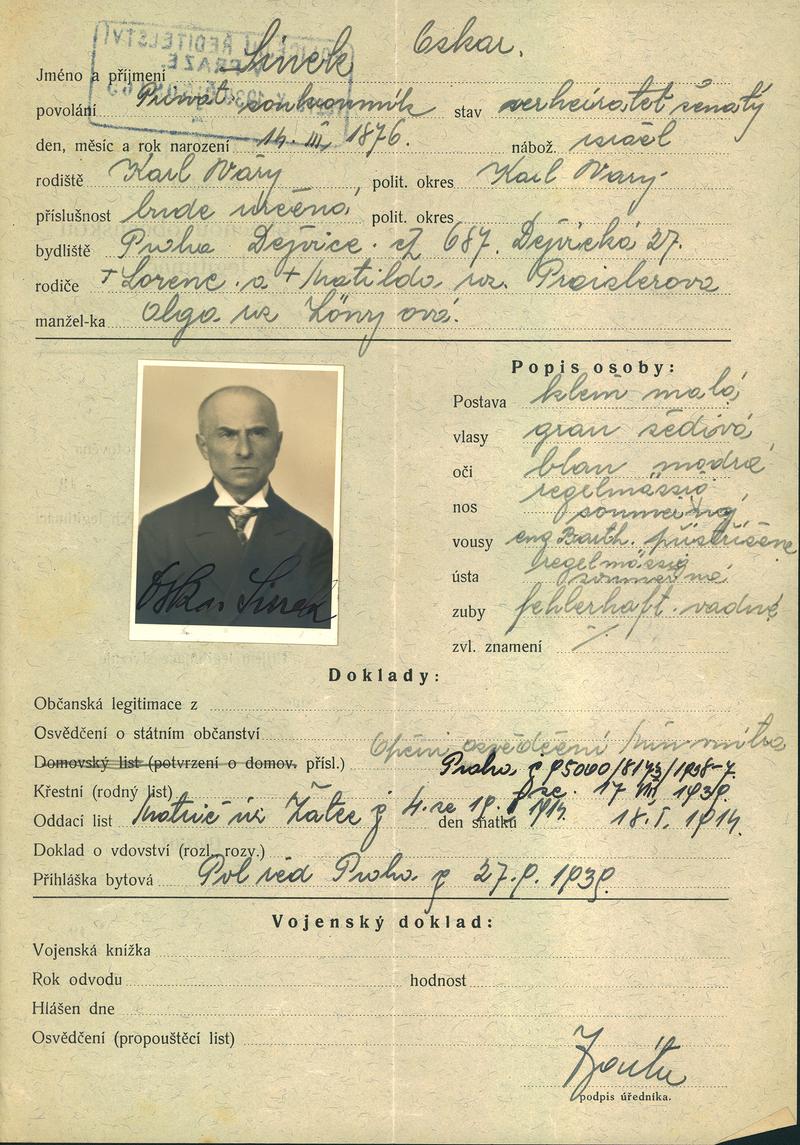 Jméno a příjmení Sinek Oskar.
povolání Privat. soukromník stav verheiratet ženatý
den, měsíc a rok narození 14. III. 1876. nábož. israel
rodiště Karl Vary, polit. okres Karl Vary
příslušnost bude určena, polit. okres
bydliště Praha Dejvice. čp 687. Dejvická 27.
rodiče + Lorenc. a + Matilda roz. Praislerova
manžel-ka Olga roz Lönyová.
Popis osoby:
Postava klein malá
vlasy grau šedivá
oči blau modré
regelmässig
nos souměrný
vousy eng. Barth. přistřižené
regelmässig
ústa souměrné
zuby fehlerhaft. vadné
zvl. znamení /
Oskar Sinek
Doklady:
Občanská legitimace z
Osvědčení o státním občanství
Domovský list (potvrzení o domov. přísl.)
Praha, č 95000/8173/1938-7.
Křestní (rodný list) ze. 17 VII, 1939.
Oddací list Žatec den sňatku 18. I. 1914.
Doklad o vdovství (rozl., rozv.)
Přihláška bytová Pol řed Praha z 27.9. 1939.
Vojenský doklad:
Vojenská knížka
Rok odvodu hodnost
Hlášen dne
Osvědčení (propouštěcí list)
podpis úředníka.